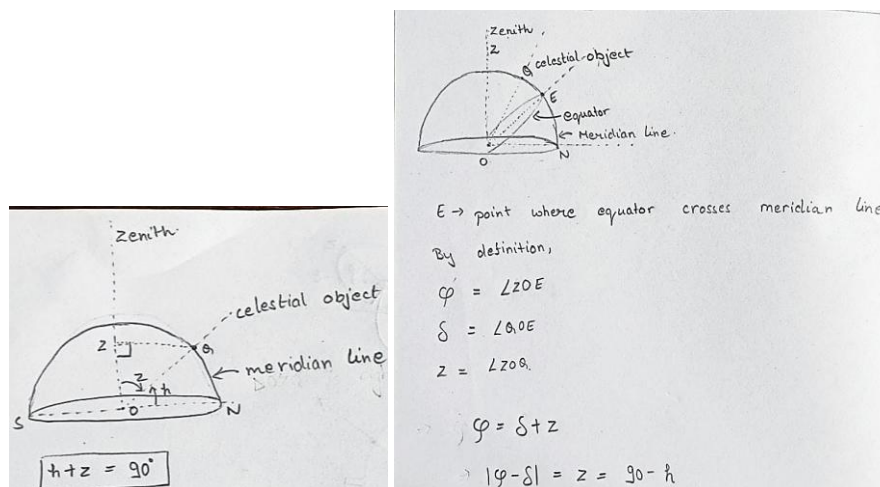 Zenith
celestial object
Z
Q
meridian line
z
h
S
O
N
h+z = 90°
Zenith
Z
Q celestial object
E
equator
Meridian line.
O
N
E → point where equator crosses meridian line
By definition,
φ = ∠ZOE
δ = ∠QOE
z = ∠ZOQ.
φ = δ+z
|φ-δ| = z = 90-h